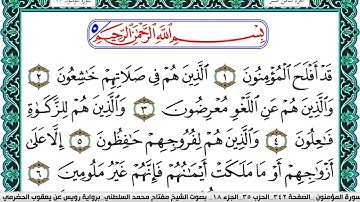 بِسْمِ اللَّهِ الرَّحْمَٰنِ الرَّحِيمِ
قَدْ أَفْلَحَ الْمُؤْمِنُونَ ١ الَّذِينَ هُمْ فِي صَلَاتِهِمْ خَاشِعُونَ ٢
وَالَّذِينَ هُمْ عَنِ اللَّغْوِ مُعْرِضُونَ ٣ وَالَّذِينَ هُمْ لِلزَّكَوٰةِ
فَاعِلُونَ ٤ وَالَّذِينَ هُمْ لِفُرُوجِهِمْ حَافِظُونَ ٥ إِلَّا عَلَىٰ
أَزْوَاجِهِمْ أَوْ مَا مَلَكَتْ أَيْمَانُهُمْ فَإِنَّهُمْ غَيْرُ مَلُومِينَ ٦
سورة المؤمنون الصفحة ٣٤٢ الحزب ٣٥ الجزء ١٨ بصوت الشيخ مفتاح محمد السلطني برواية رويس عن يعقوب الحضرمي